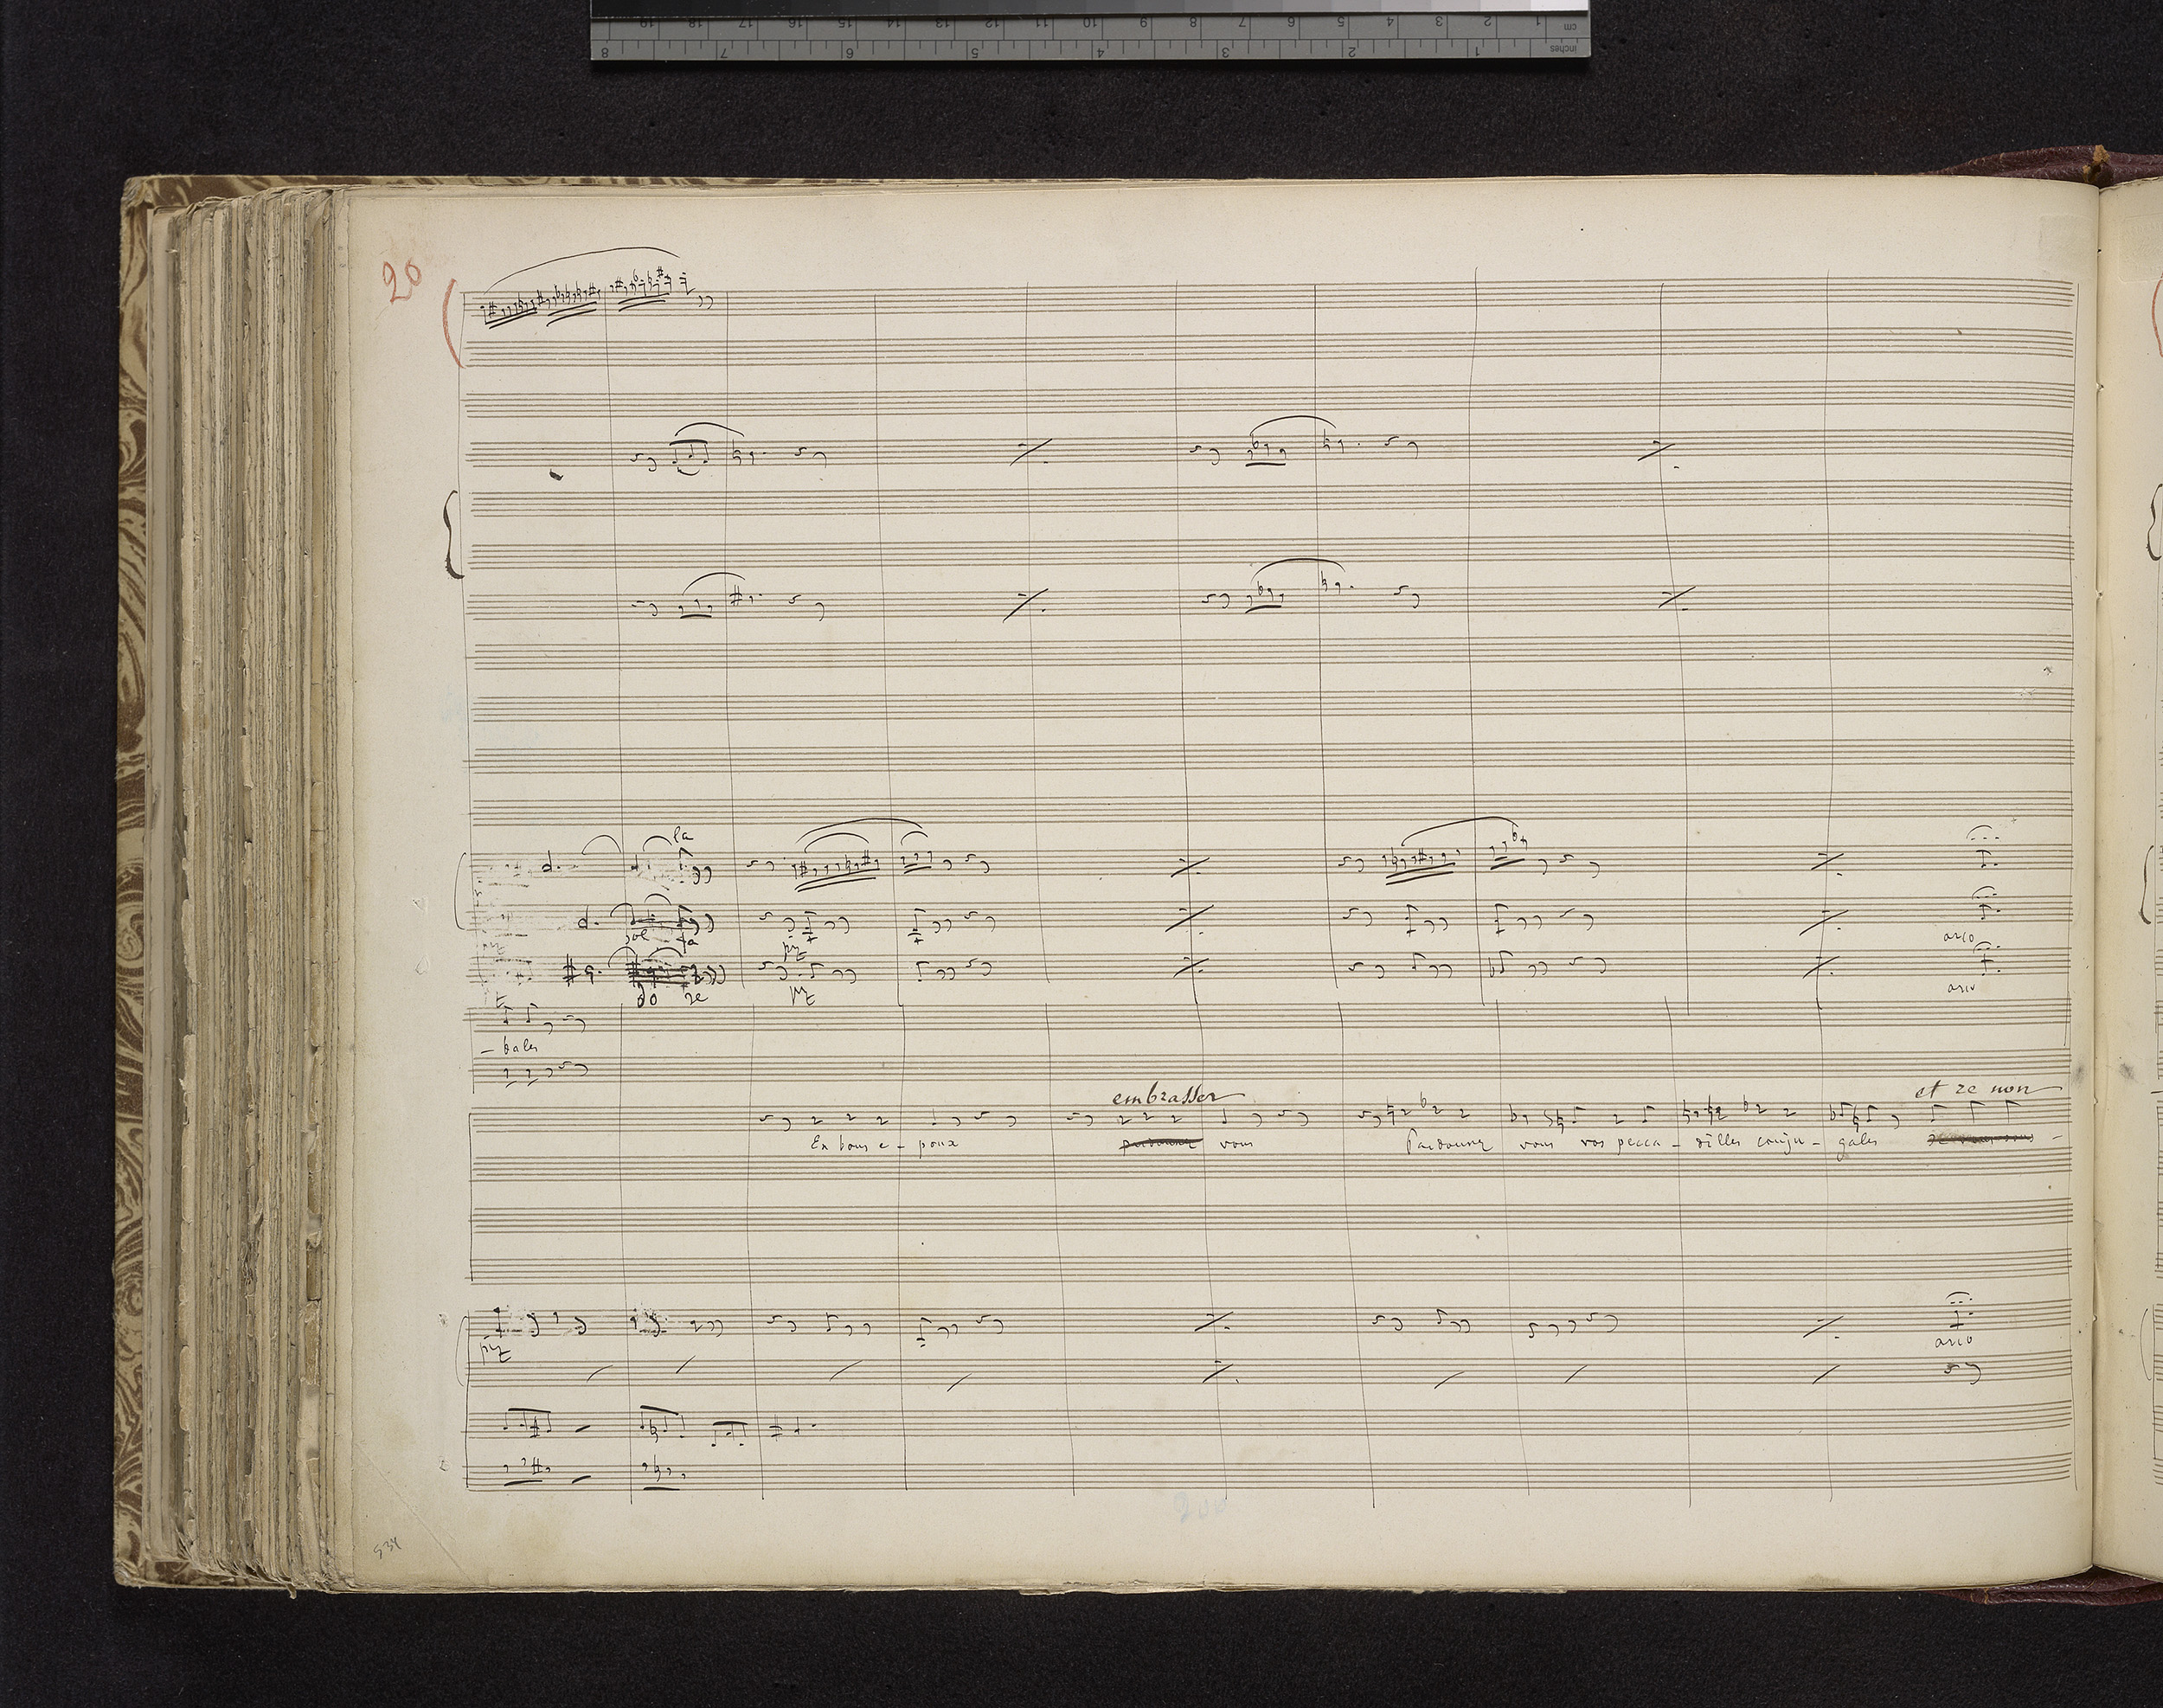 19 18 17 16 15 14 13 12 11 10 9 8 7 6 5 4 3 2 1 cm
8 7 6 5 4 3 2 1 inches
20
la
sol fa
pz
arco
do re
pz
arco
- bales
embrasser
et re non
En bons e - poux
pardonnez
vous
Pardonnez vous vos pecca - dilles conju - gales
pz
arco
200
534